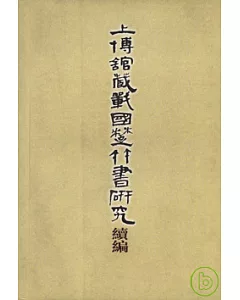 上博館藏戰國楚竹書研究
續編